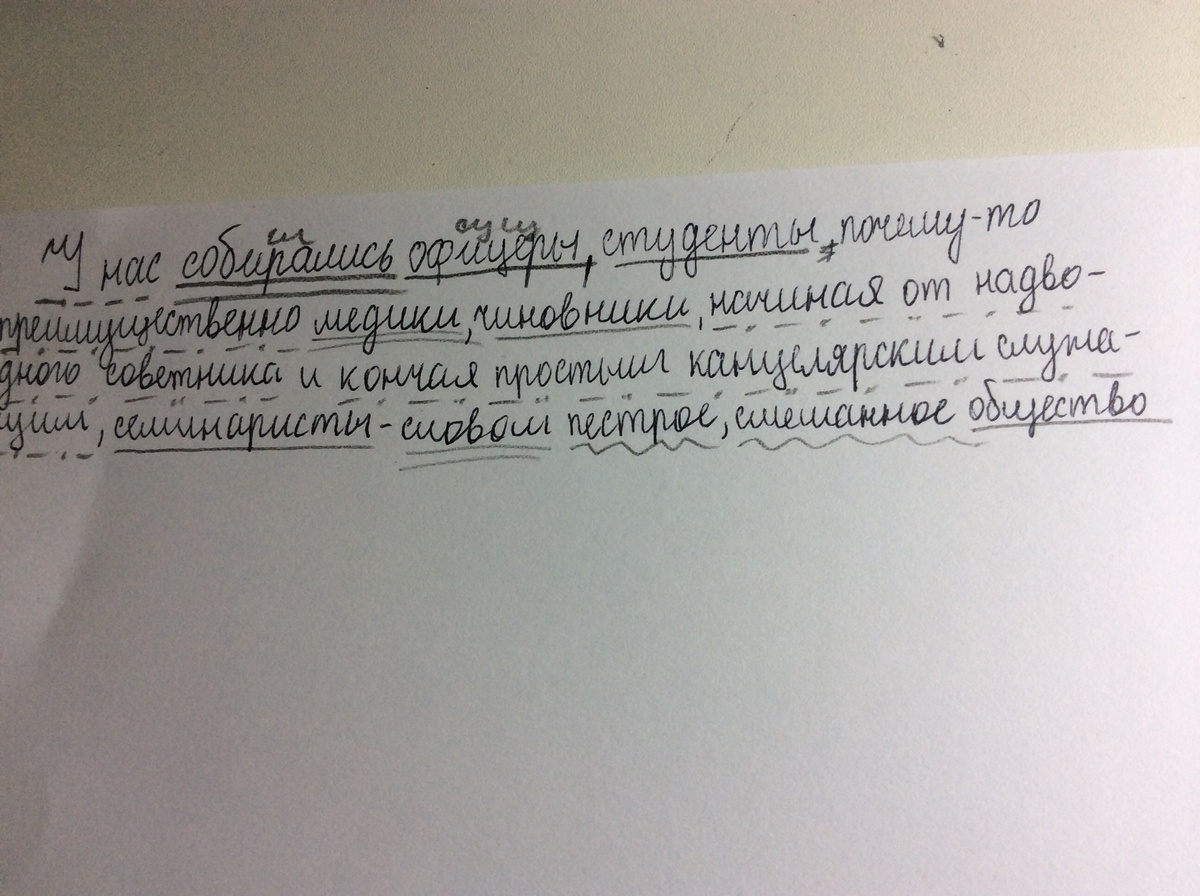 м гл сущ
У нас собирались офицеры, студенты, почему-то
преимущественно медики, чиновники, начиная от надво-
дного советника и кончая простым канцелярским служа-
щим, семинаристы - словом пестрое, смешанное общество